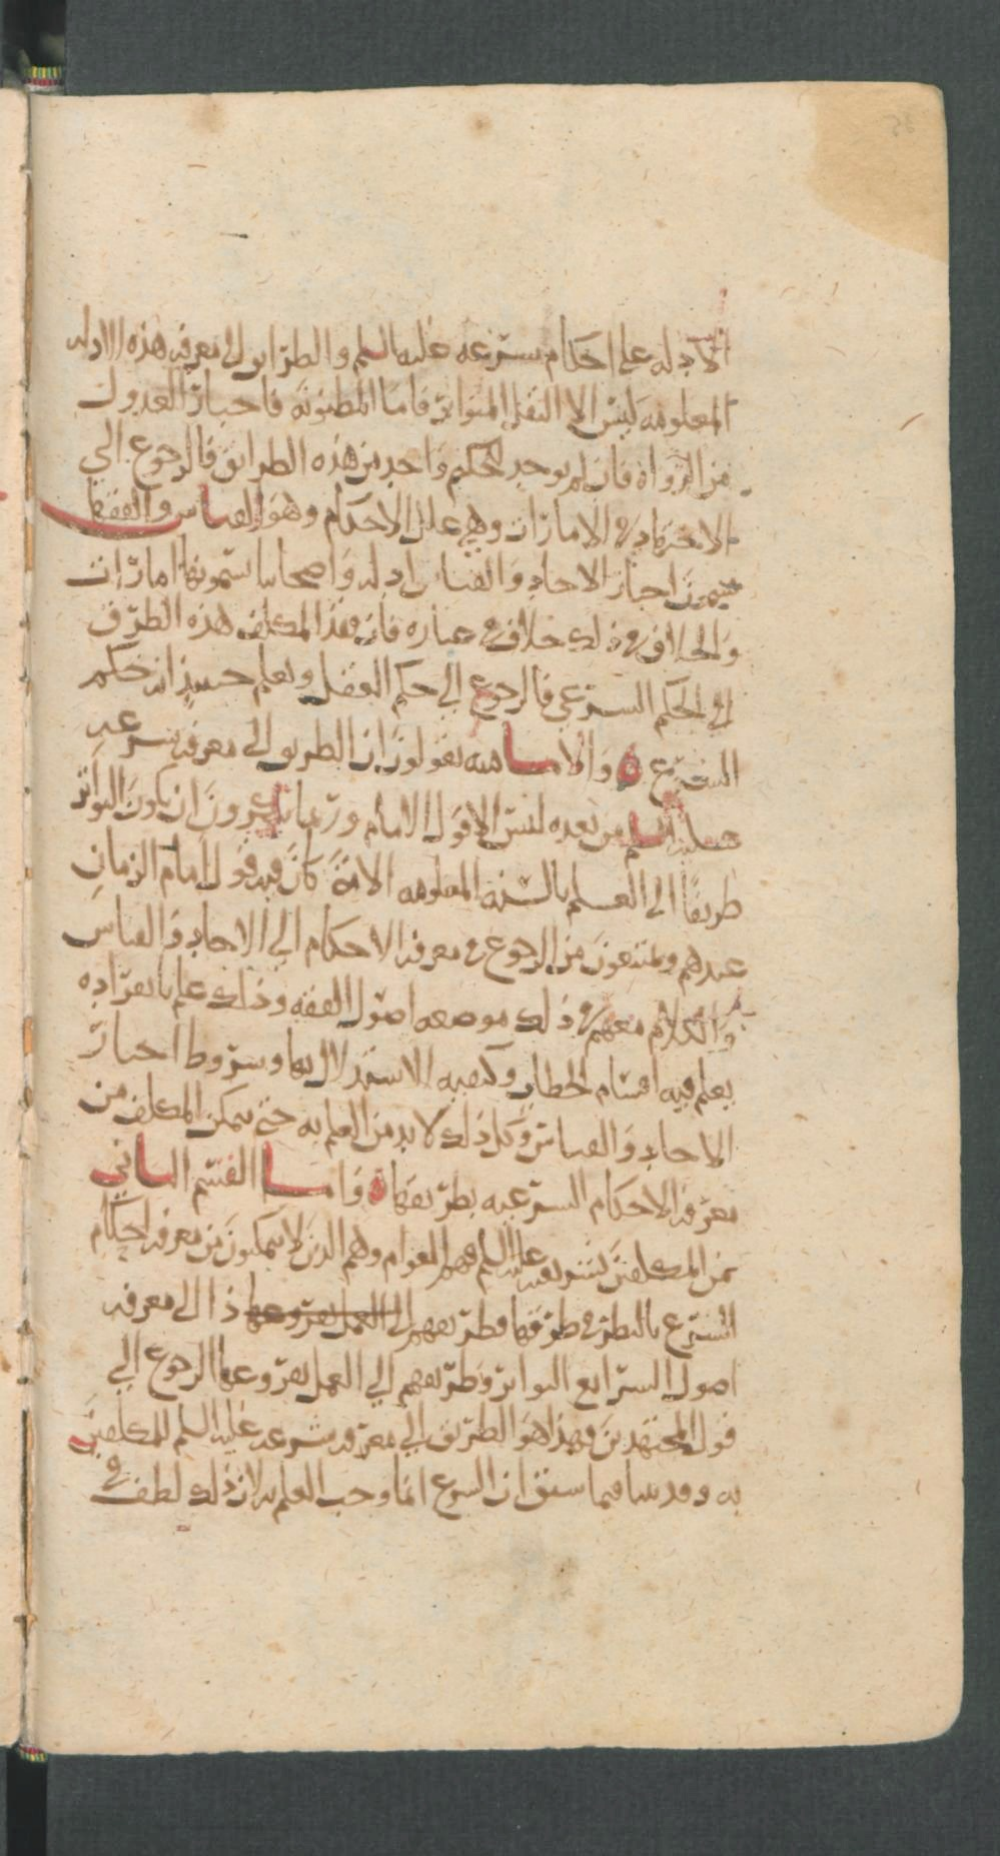 الادله على احكام شرعه عليه السلم والطرايق الى معرفه هذه الادله
المعلومه ليس الا النقل المتواتر فاما المظنونه فاخبار العدول
من الرواه فان لم يوجد لحكم واحد من هذه الطرايق فالرجوع الي
الاجتهاد في الامارات وهي علل الاحكام وهو القياس والفقها
يسمون اخبار الاحاد والقياس ادله واصحابنا يسمونها امارات
والخلاف في ذلك خلاف في عباره فان فقد المكلف هذه الطرق
في الحكم الشرعي فالرجوع الي حكم العقل ويعلم حينيذ انه حكم
الشرع ه والاماميه يقولون ان الطريق الى معرفه شرعه
عليه السلم من بعده ليس الا قول الامام وربما يذكرون ان يكون التواتر
طريقا الى العلم بالسنه المعلومه الا متى كان فيه قول امام الزمان
عندهم ويمتنعون من الرجوع في معرفه الاحكام الى الاحاد والقياس
والكلام معهم في ذلك موضعه اصول الفقه وذلك علم بانفراده
يعلم فيه اقسام الخطاب وكيفيه الاستدلال بها وشروط اخبار
الاحاد والقياس وكل ذلك لا بد من العلم به حتى يتمكن المكلف من
معرفه الاحكام الشرعيه بطريقها ه واما القسم الثاني
من المكلفين بشريعته عليه السلم فهم العوام وهم الذين لا يتمكنون من معرفه احكام
الشرع بالنظر في طرقها فطريقهم الى العمل بفروعها ذا الى معرفه
اصول الشرايع التواتر وطريقهم الي العمل بفروعها الرجوع الي
قول المجتهدين فهذا هو الطريق الي معرفه شرعه عليه السلم للمكلفين
به وقد بينا فيما سبق ان الشرع انما وجب العلم به لان ذلك لطف في